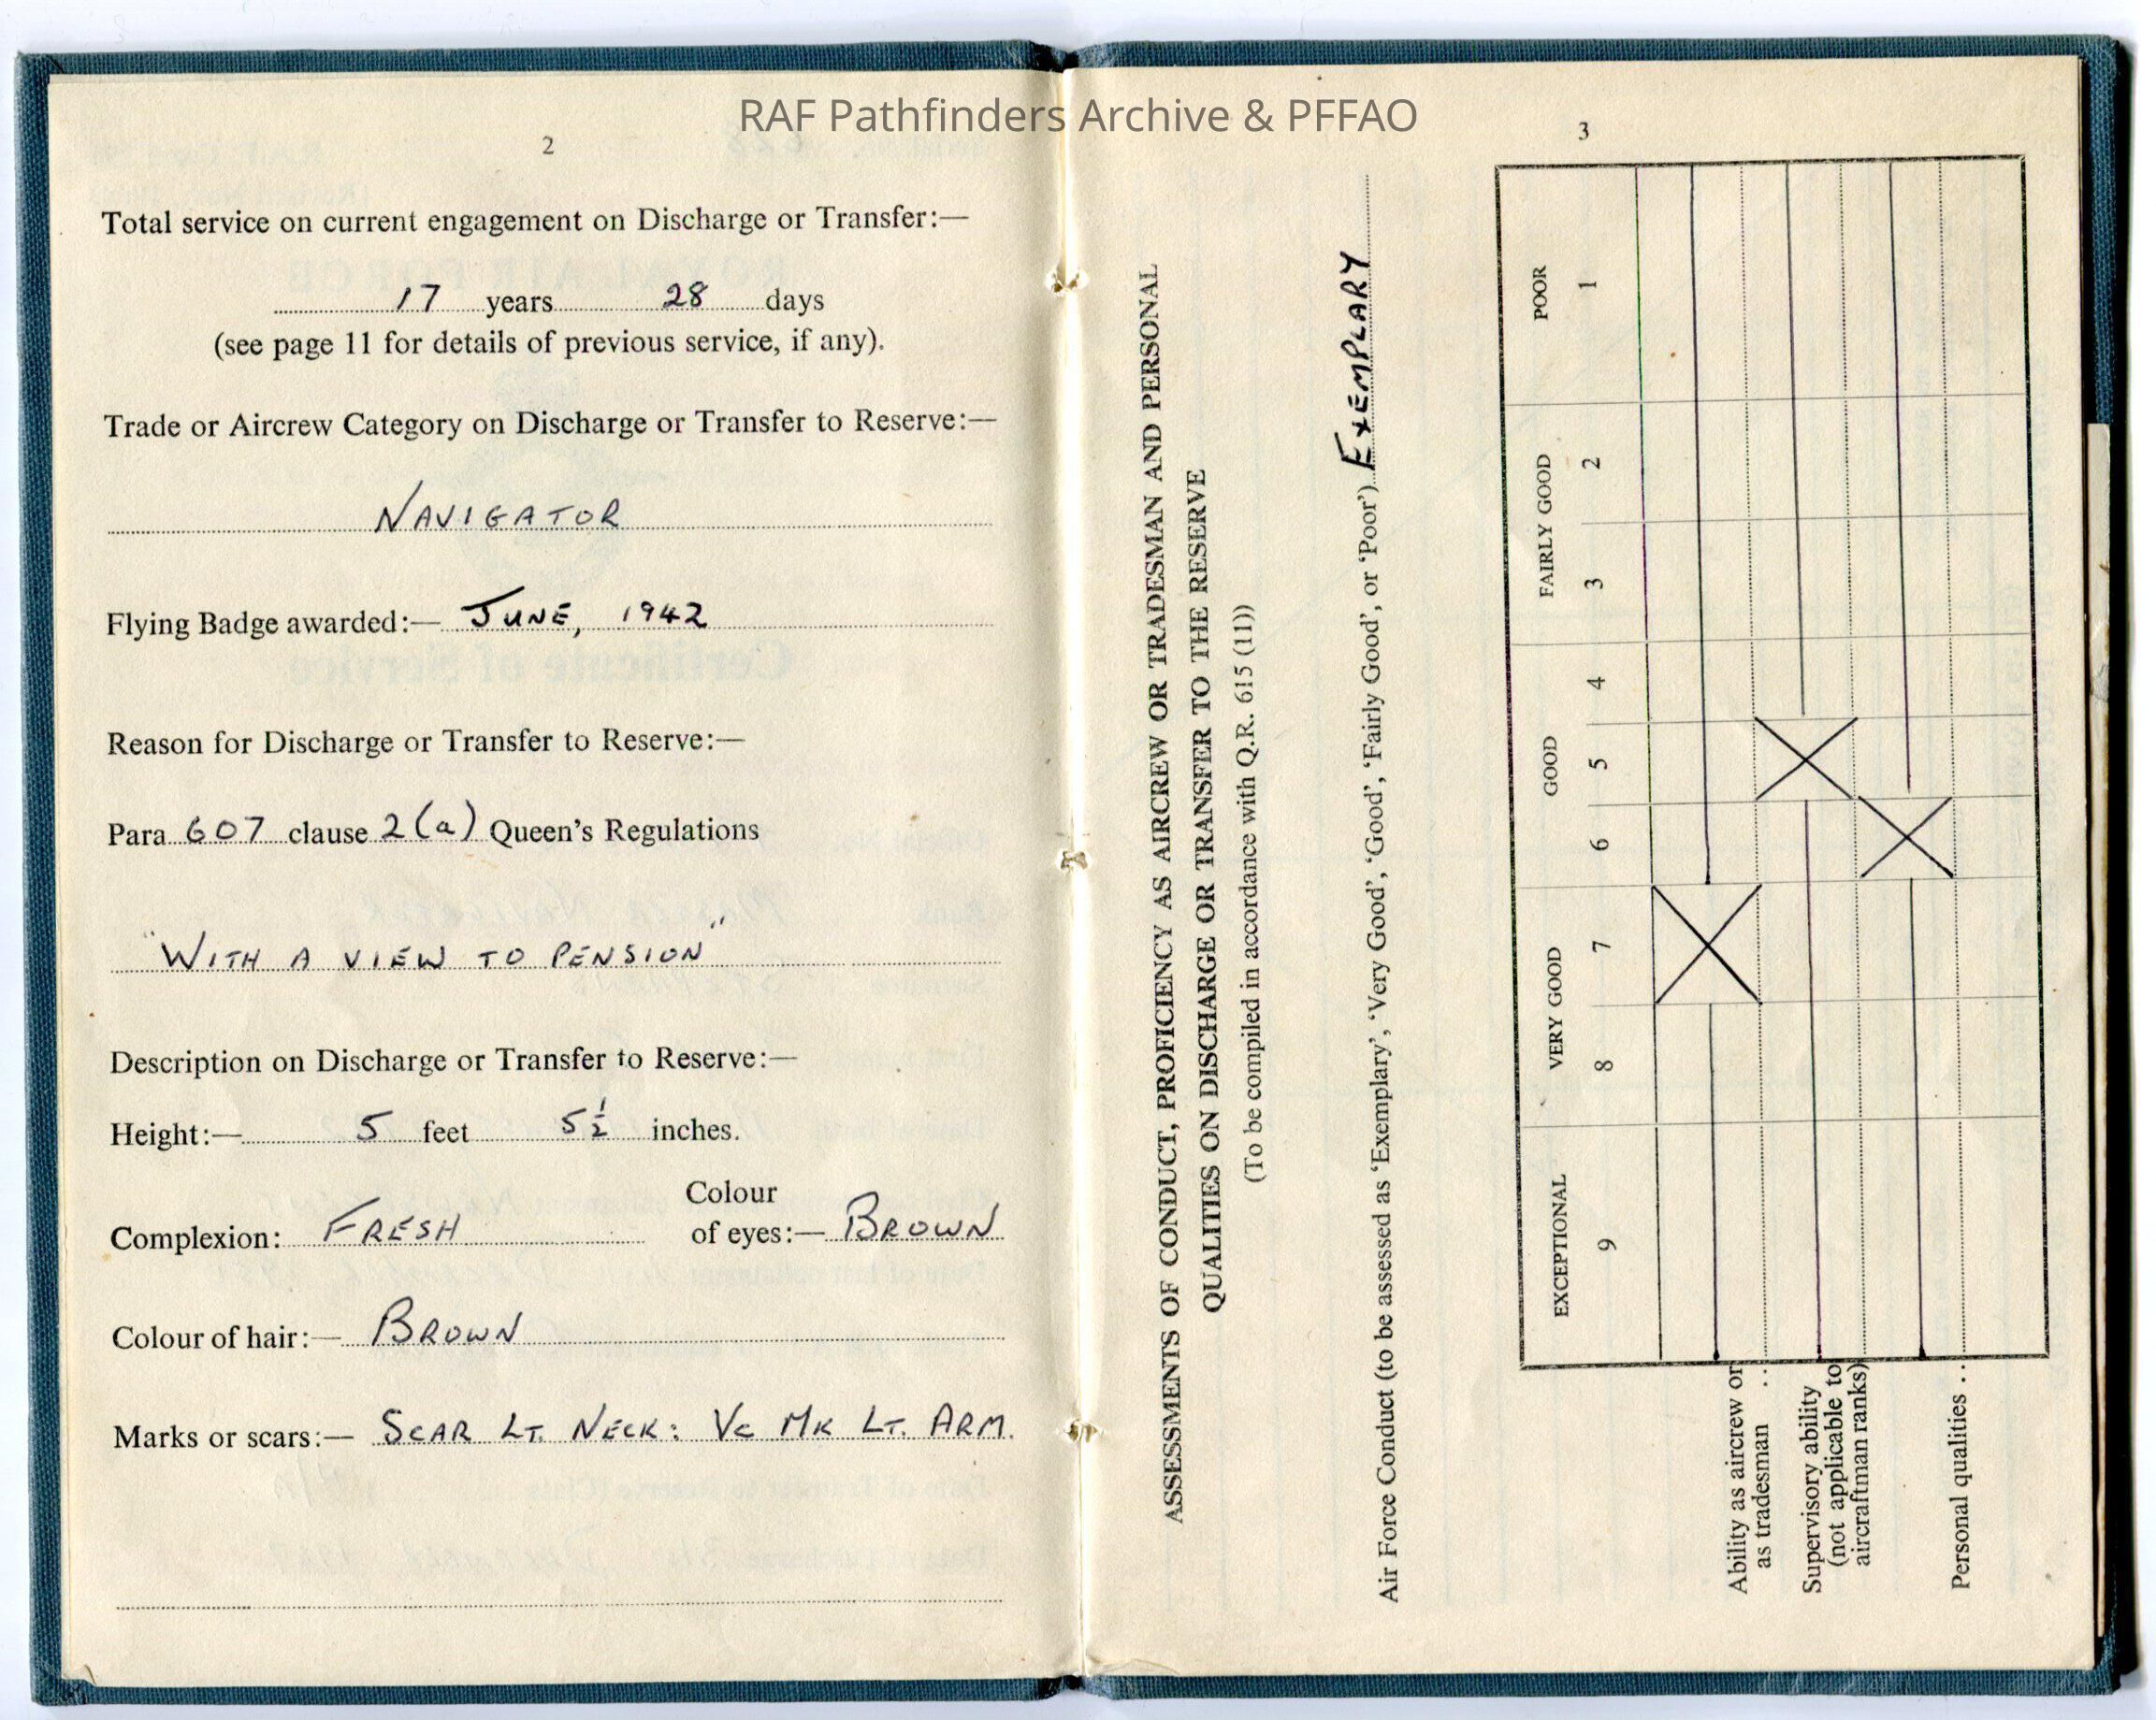 RAF Pathfinders Archive & PFFAO
2
Total service on current engagement on Discharge or Transfer:—
17 years 28 days
(see page 11 for details of previous service, if any).
Trade or Aircrew Category on Discharge or Transfer to Reserve:—
NAVIGATOR
Flying Badge awarded:— JUNE, 1942
Reason for Discharge or Transfer to Reserve:—
Para 607 clause 2(a) Queen's Regulations
"WITH A VIEW TO PENSION"
Description on Discharge or Transfer to Reserve:—
Height:— 5 feet 5½ inches.
Complexion: FRESH Colour of eyes:— BROWN
Colour of hair:— BROWN
Marks or scars:— SCAR LT. NECK: VC MK LT. ARM.
3
ASSESSMENTS OF CONDUCT, PROFICIENCY AS AIRCREW OR TRADESMAN AND PERSONAL
QUALITIES ON DISCHARGE OR TRANSFER TO THE RESERVE
(To be compiled in accordance with Q.R. 615 (11))
Air Force Conduct (to be assessed as 'Exemplary', 'Very Good', 'Good', 'Fairly Good', or 'Poor') EXEMPLARY
EXCEPTIONAL VERY GOOD GOOD FAIRLY GOOD POOR
9 8 7 6 5 4 3 2 1
Ability as aircrew or
as tradesman ..
Supervisory ability
(not applicable to
aircraftman ranks)
Personal qualities ..